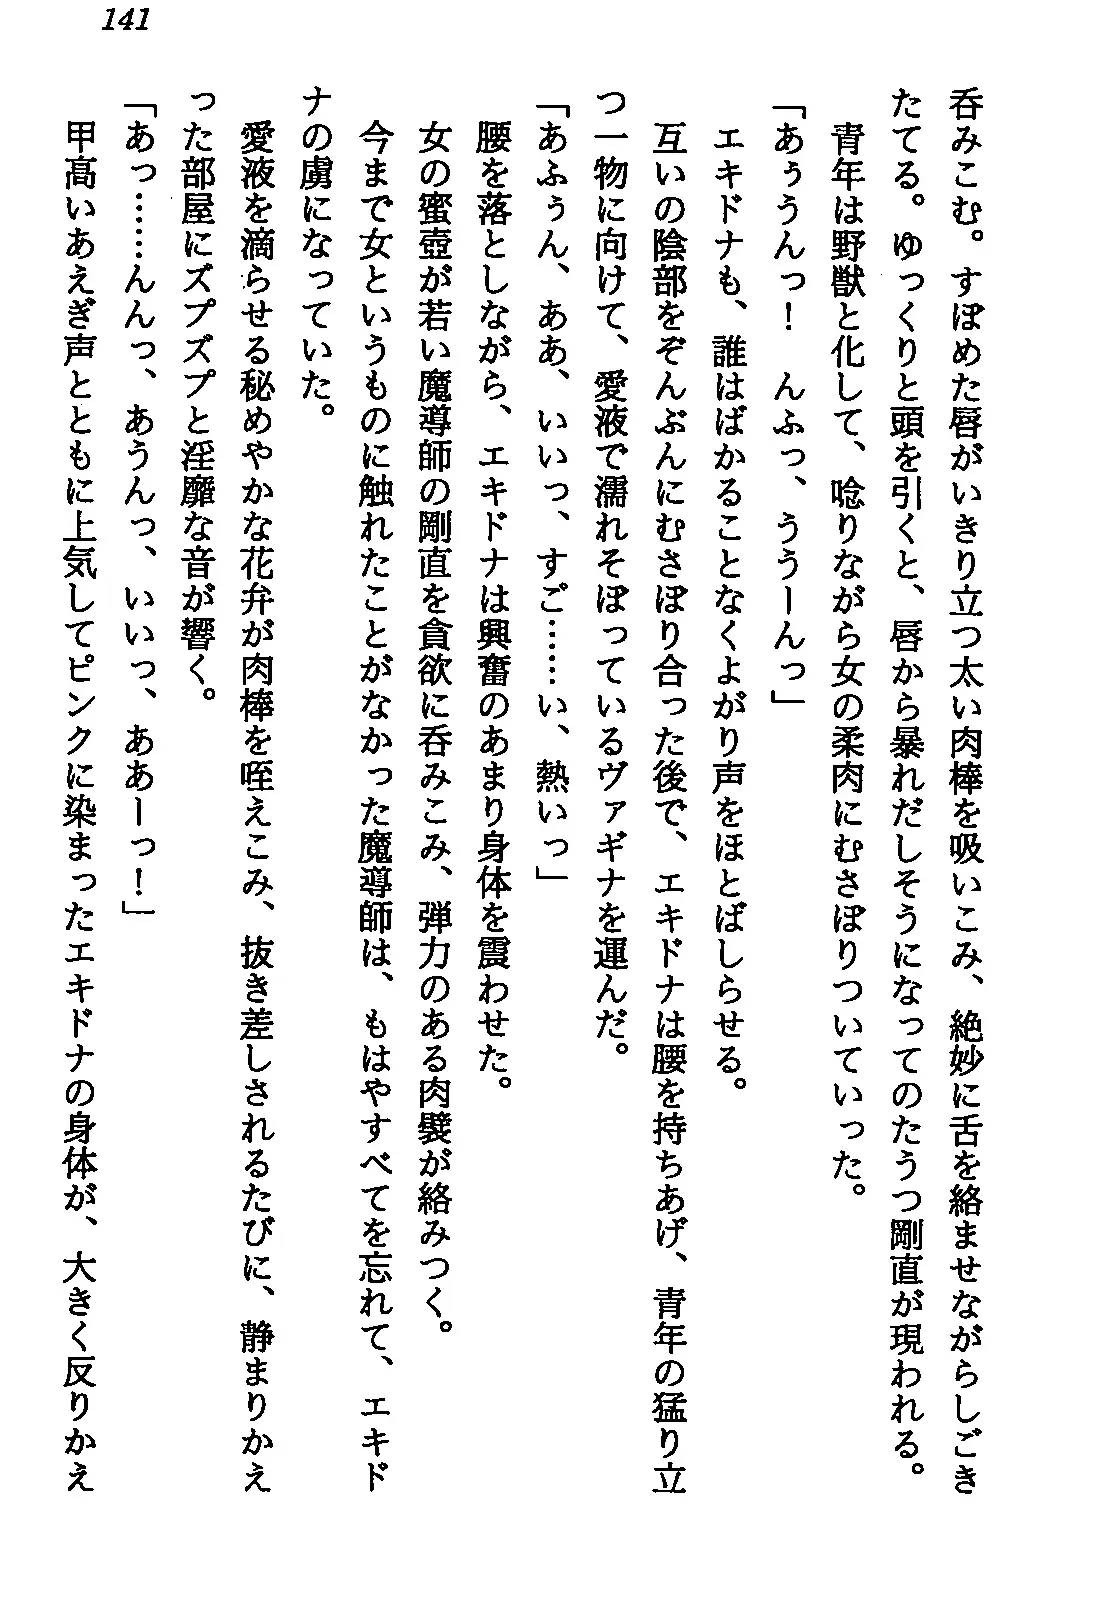 141
呑みこむ。すぼめた唇がいきり立つ太い肉棒を吸いこみ、絶妙に舌を絡ませながらしごき
たてる。ゆっくりと頭を引くと、唇から暴れだしそうになってのたうつ剛直が現われる。
青年は野獣と化して、唸りながら女の柔肉にむさぼりついていった。
「あぅうんっ！　んふっ、ううーんっ」
エキドナも、誰はばかることなくよがり声をほとばしらせる。
互いの陰部をぞんぶんにむさぼり合った後で、エキドナは腰を持ちあげ、青年の猛り立
つ一物に向けて、愛液で濡れそぼっているヴァギナを運んだ。
「あふぅん、ああ、いいっ、すご……い、熱いっ」
腰を落としながら、エキドナは興奮のあまり身体を震わせた。
女の蜜壺が若い魔導師の剛直を貪欲に呑みこみ、弾力のある肉襞が絡みつく。
今まで女というものに触れたことがなかった魔導師は、もはやすべてを忘れて、エキド
ナの虜になっていた。
愛液を滴らせる秘めやかな花弁が肉棒を咥えこみ、抜き差しされるたびに、静まりかえ
った部屋にズプズプと淫靡な音が響く。
「あっ……んんっ、あうんっ、いいっ、ああーっ！」
甲高いあえぎ声とともに上気してピンクに染まったエキドナの身体が、大きく反りかえ